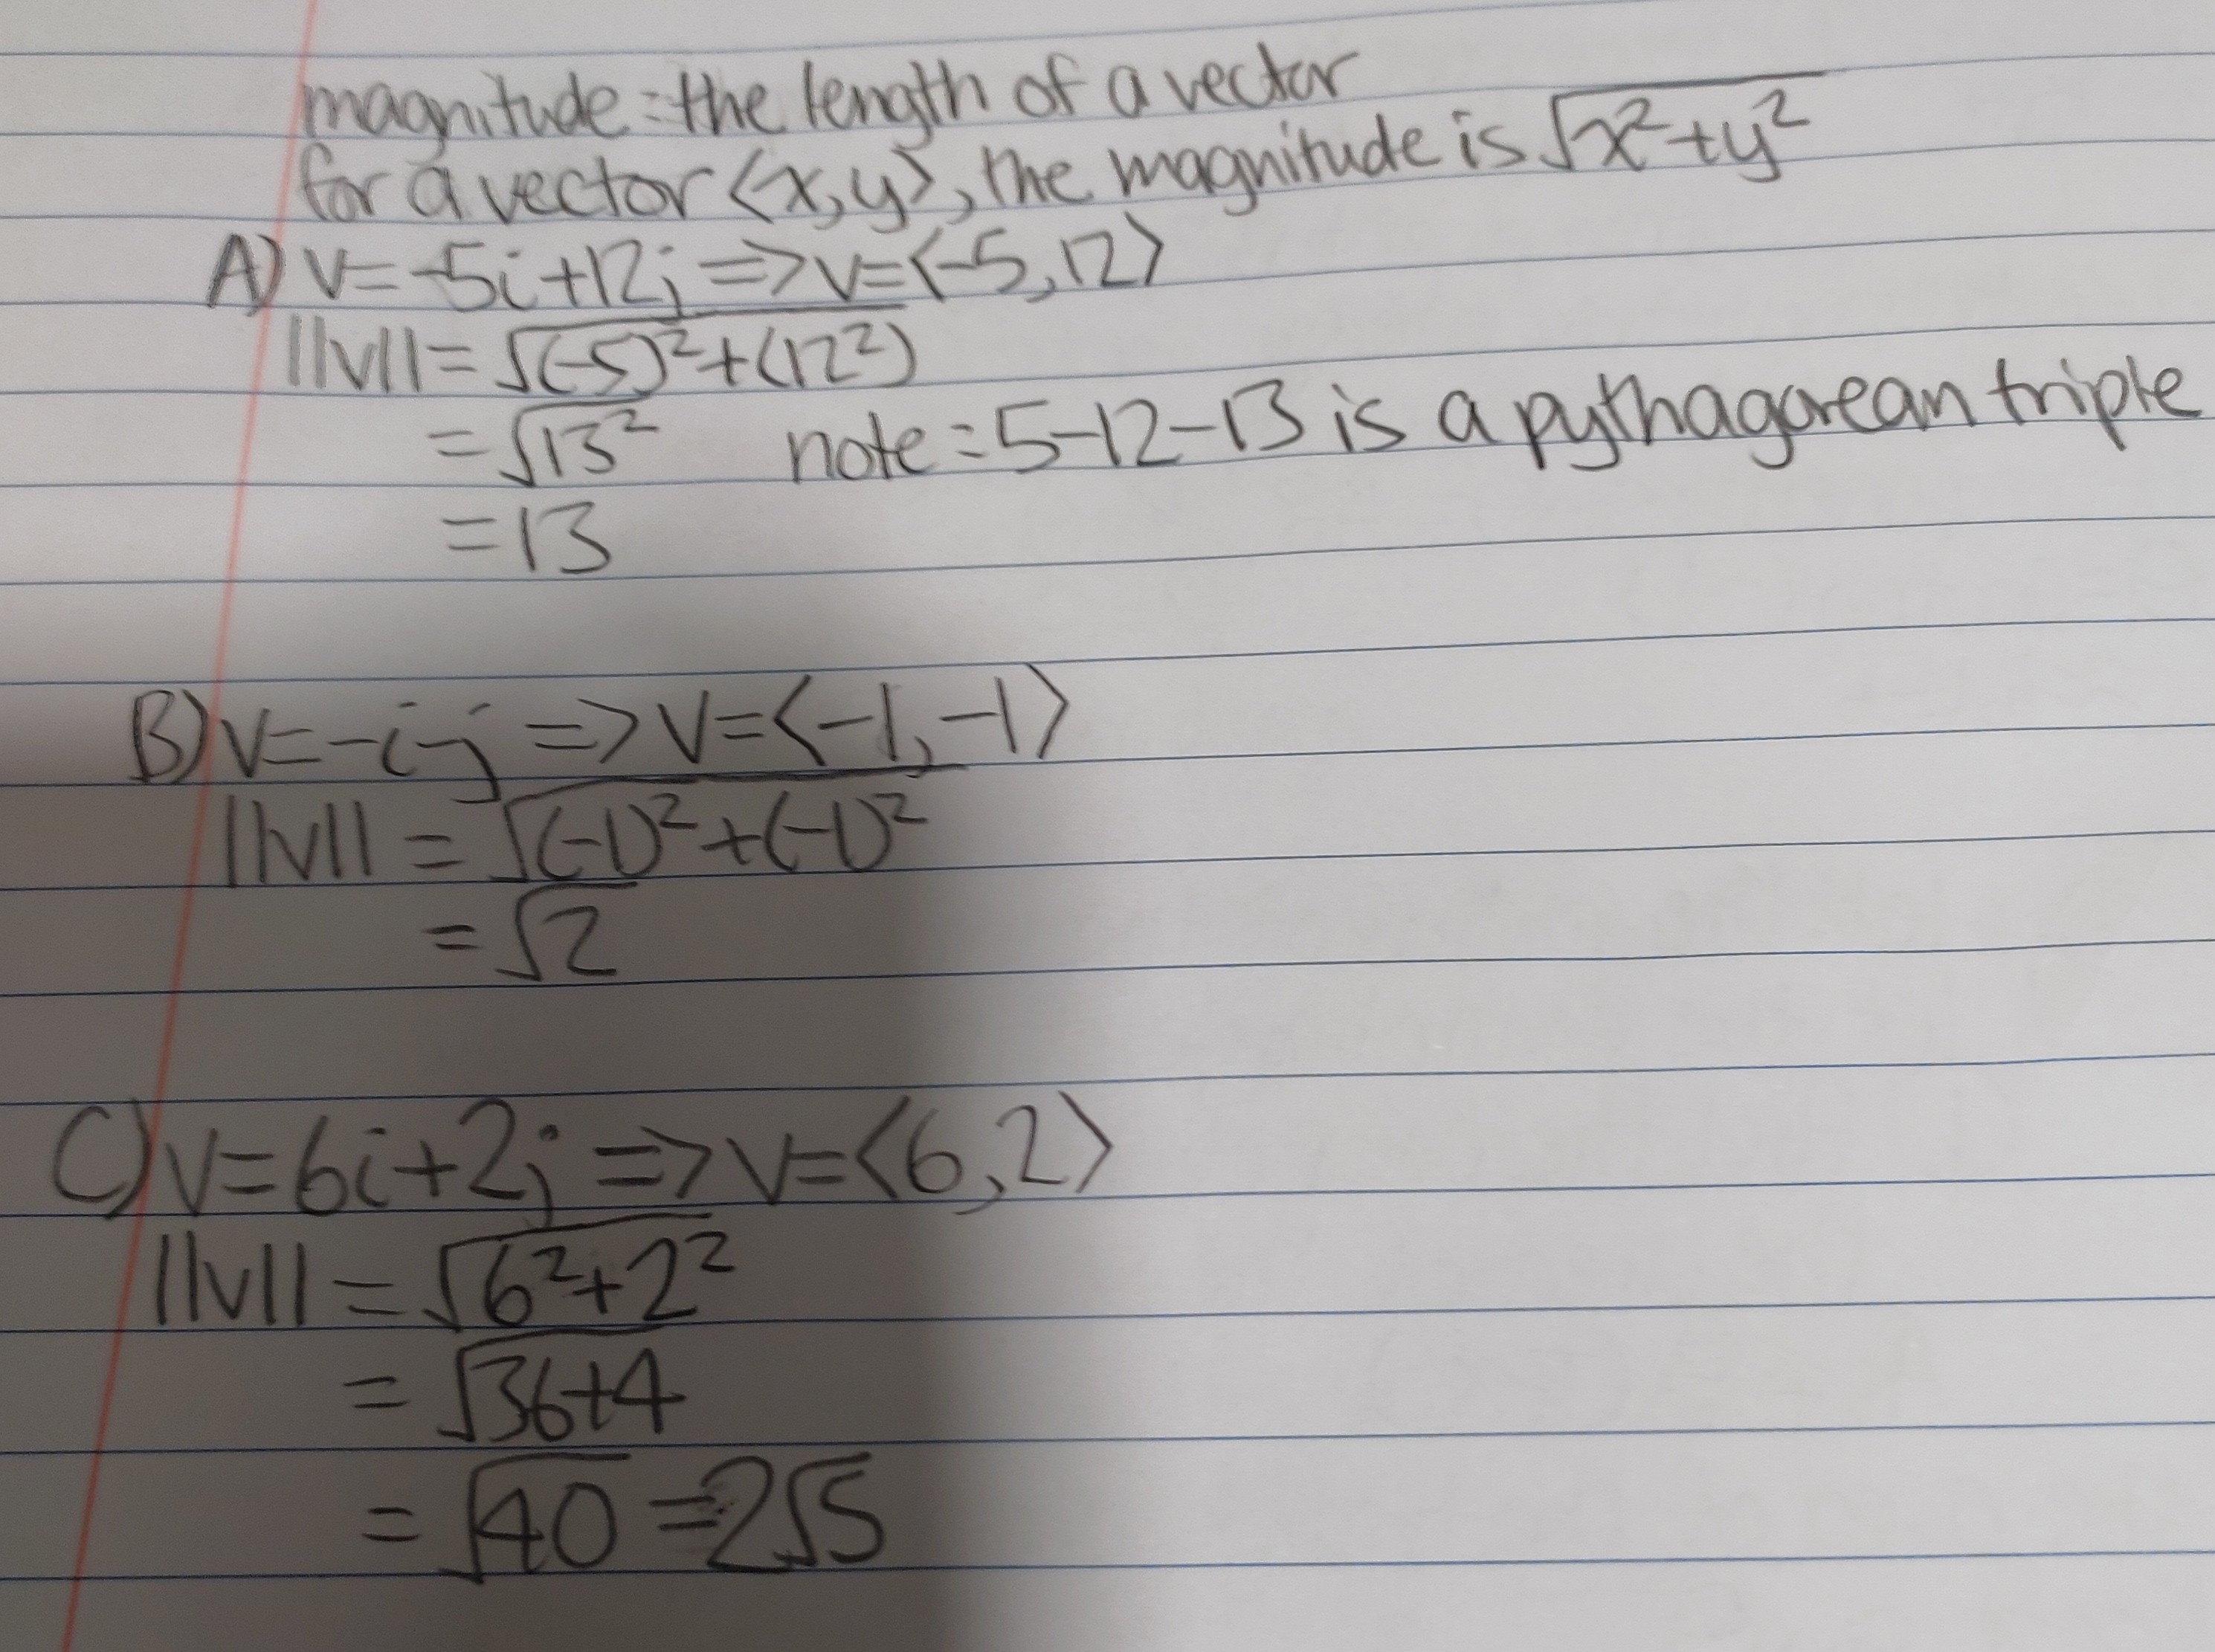 magnitude = the length of a vector
for a vector ⟨x,y⟩, the magnitude is √x²+y²
A) v=-5i+12j => v=⟨-5,12⟩
||v|| = √(-5)²+(12²)
= √13² note = 5-12-13 is a pythagorean triple
= 13
B) v=-i-j => v=⟨-1,-1⟩
||v|| = √(-1)²+(-1)²
= √2
C) v=6i+2j => v=⟨6,2⟩
||v|| = √6²+2²
= √36+4
= √40 = 2√5